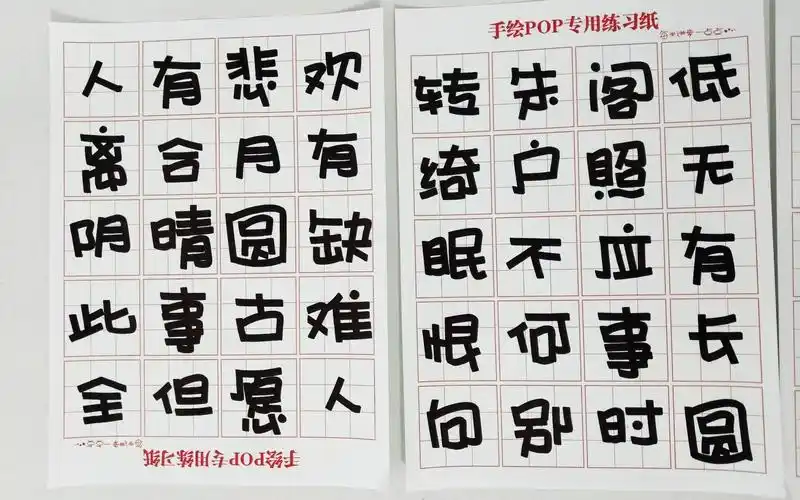 人有悲欢
离合月有
阴晴圆缺
此事古难
全但愿人
手绘POP专用练习纸
手绘POP专用练习纸
每天进步一点点
转朱阁低
绮户照无
眠不应有
恨何事长
向别时圆